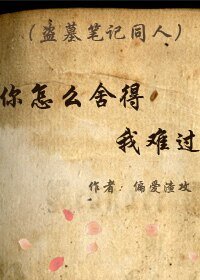 （盗墓笔记同人）
你怎么舍得
我难过
作者：偏爱渣攻